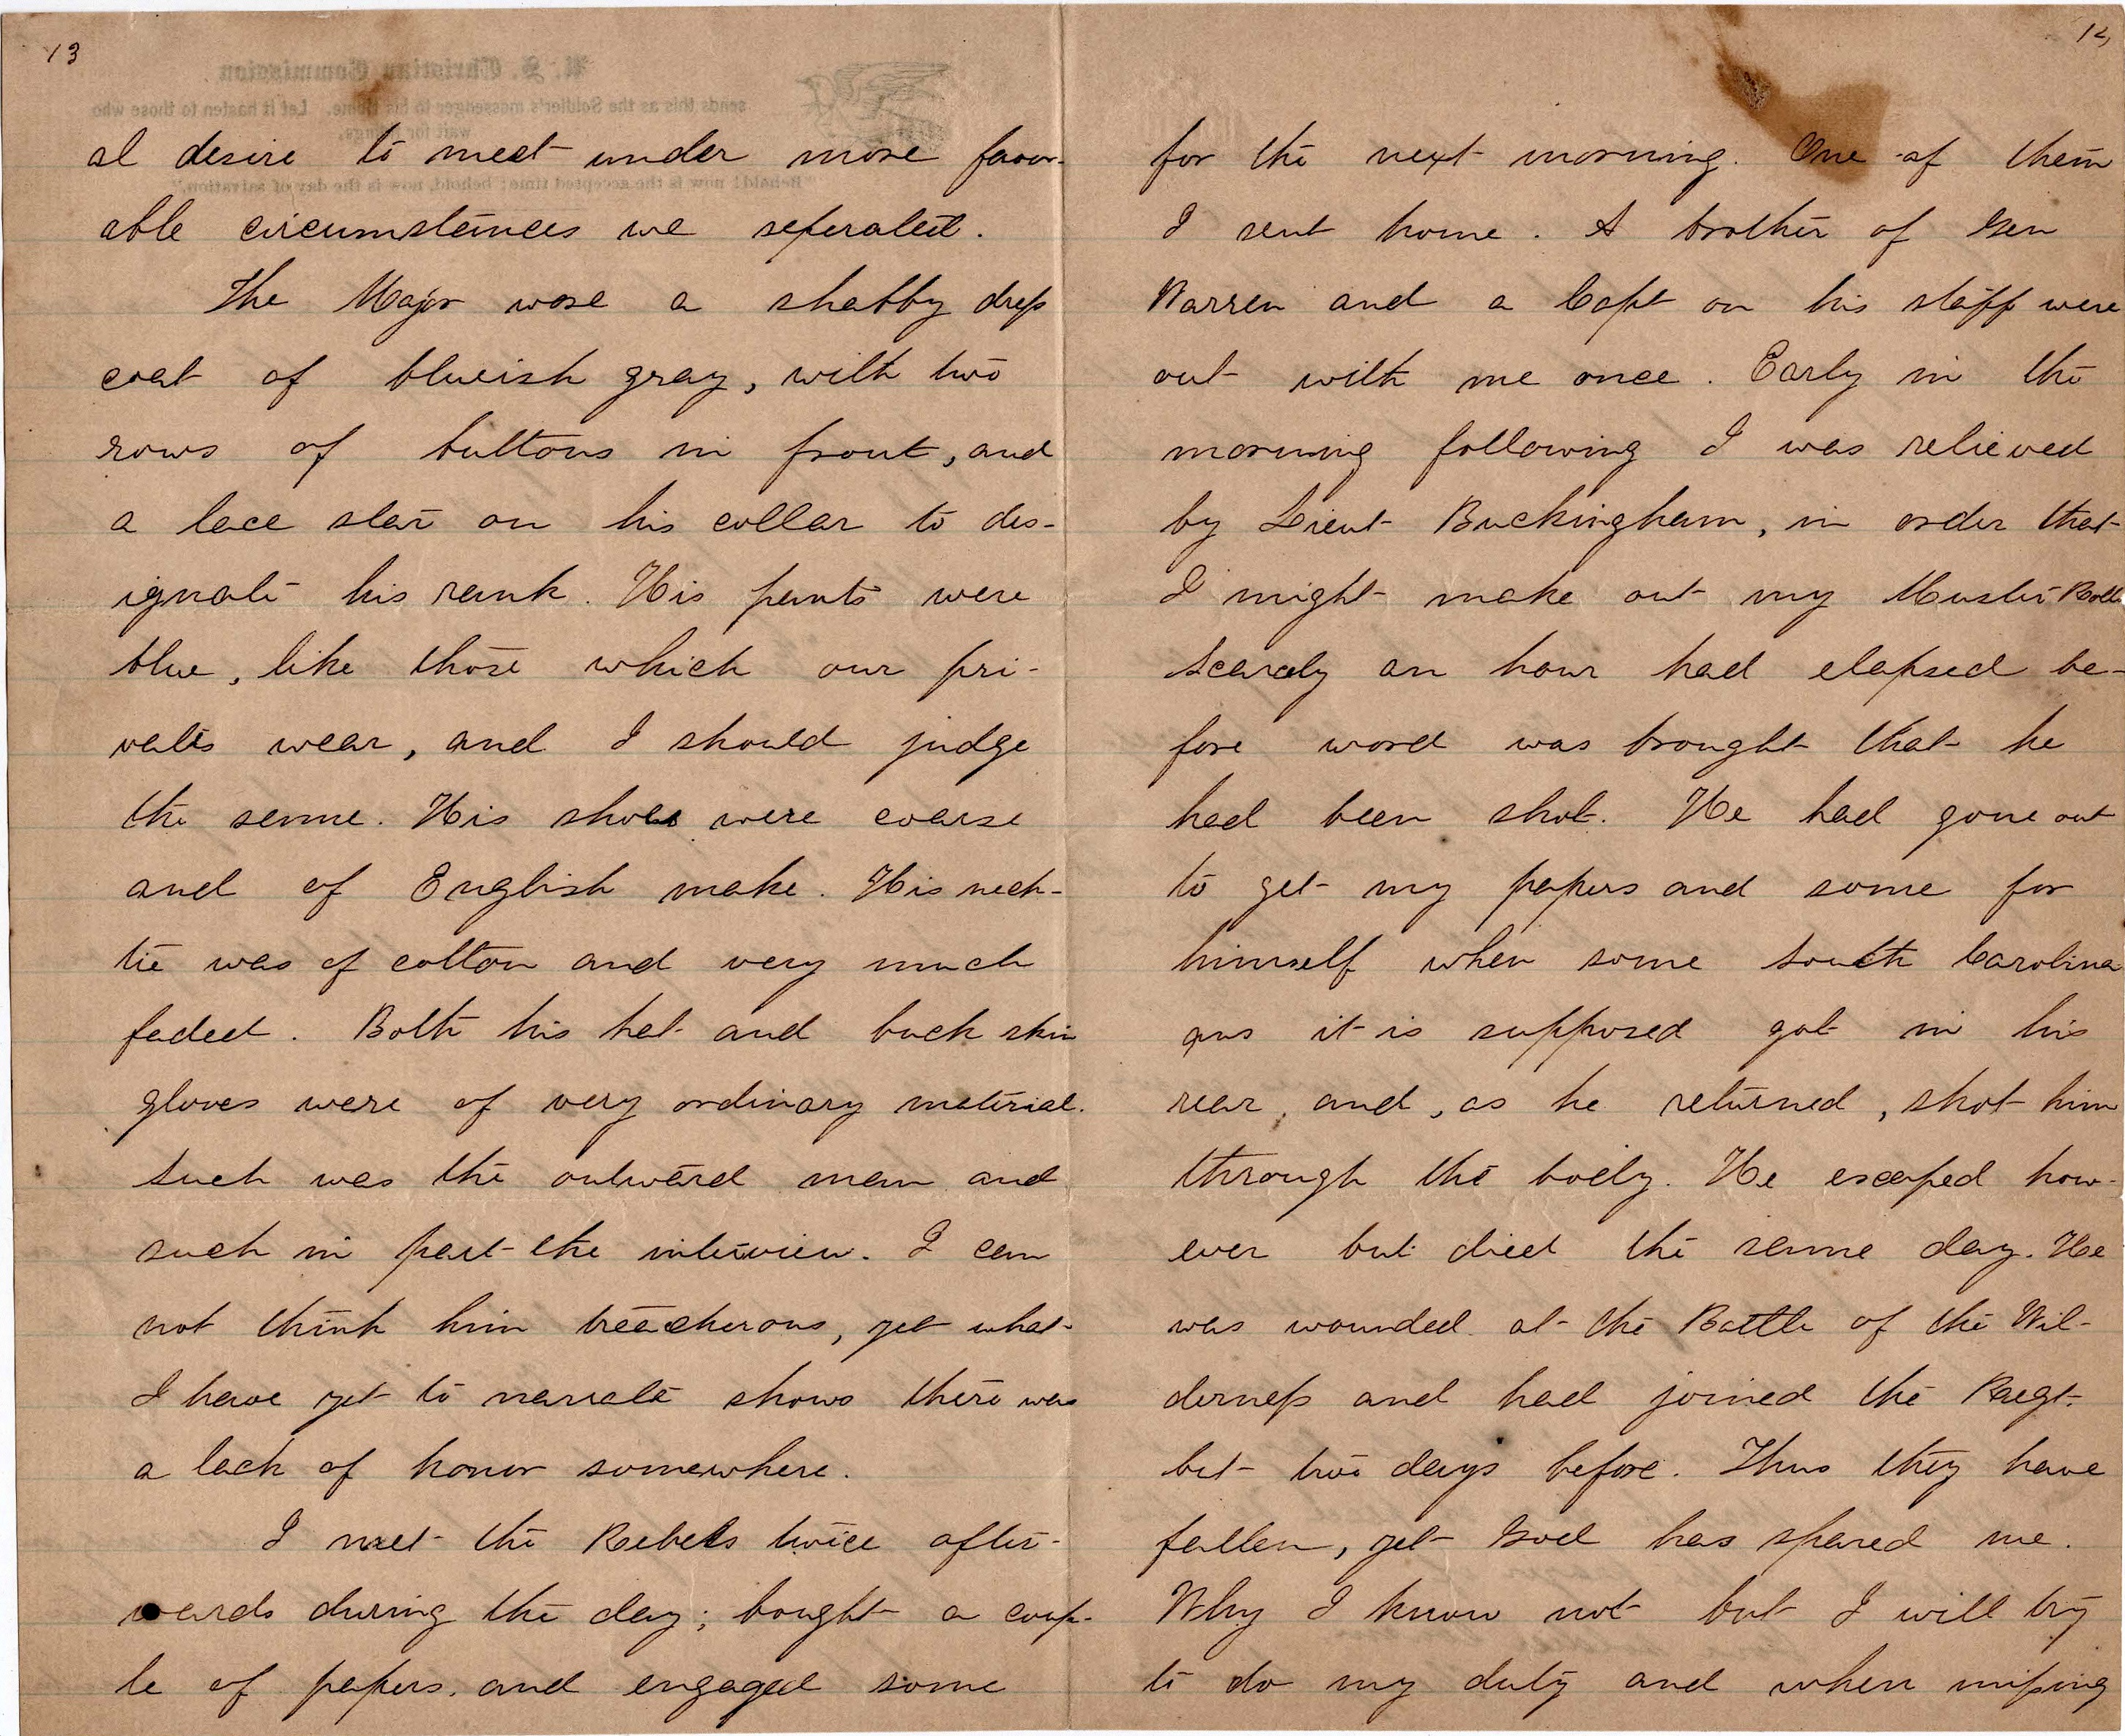 13
al desire to meet under more favor-
able circumstances we seperated.
The Major wore a shabby dress
coat of blueish gray, with two
rows of buttons in front, and
a lace star on his collar to des-
ignate his rank. His pants were
blue, like those which our pri-
vates wear, and I should judge
the same. His shoes were coarse
and of English make. His neck-
tie was of cotton and very much
faded. Both his hat and buck skin
gloves were of very ordinary material.
Such was the outward man and
such in part the interview. I can
not think him treacherous, yet what
I have yet to narrate shows there was
a lack of honor somewhere.
I met the Rebels twice after-
wards during the day; bought a coup-
le of papers, and engaged some
14
for the next morning. One of them
I sent home. A brother of Gen
Warren and a Capt on his staff were
out with me once. Early in the
morning following I was relieved
by Lieut Buckingham, in order that
I might make out my Muster Rolls
Scarcely an hour had elapsed be-
fore word was brought that he
had been shot. He had gone out
to get my papers and some for
himself when some South Carolina
ans it is supposed got in his
rear, and, as he returned, shot him
through the body. He escaped how-
ever but died the same day. He
was wounded at the Battle of the Wil-
derness and had joined the Regt.
but two days before. Thus they have
fallen, yet God has spared me.
Why I know not but I will try
to do my duty and when missing
U. S. Christian Commission
sends this as the Soldier's messenger to his Home. Let it hasten to those who
wait for tidings.
"Behold! now is the accepted time; behold, now is the day of salvation."